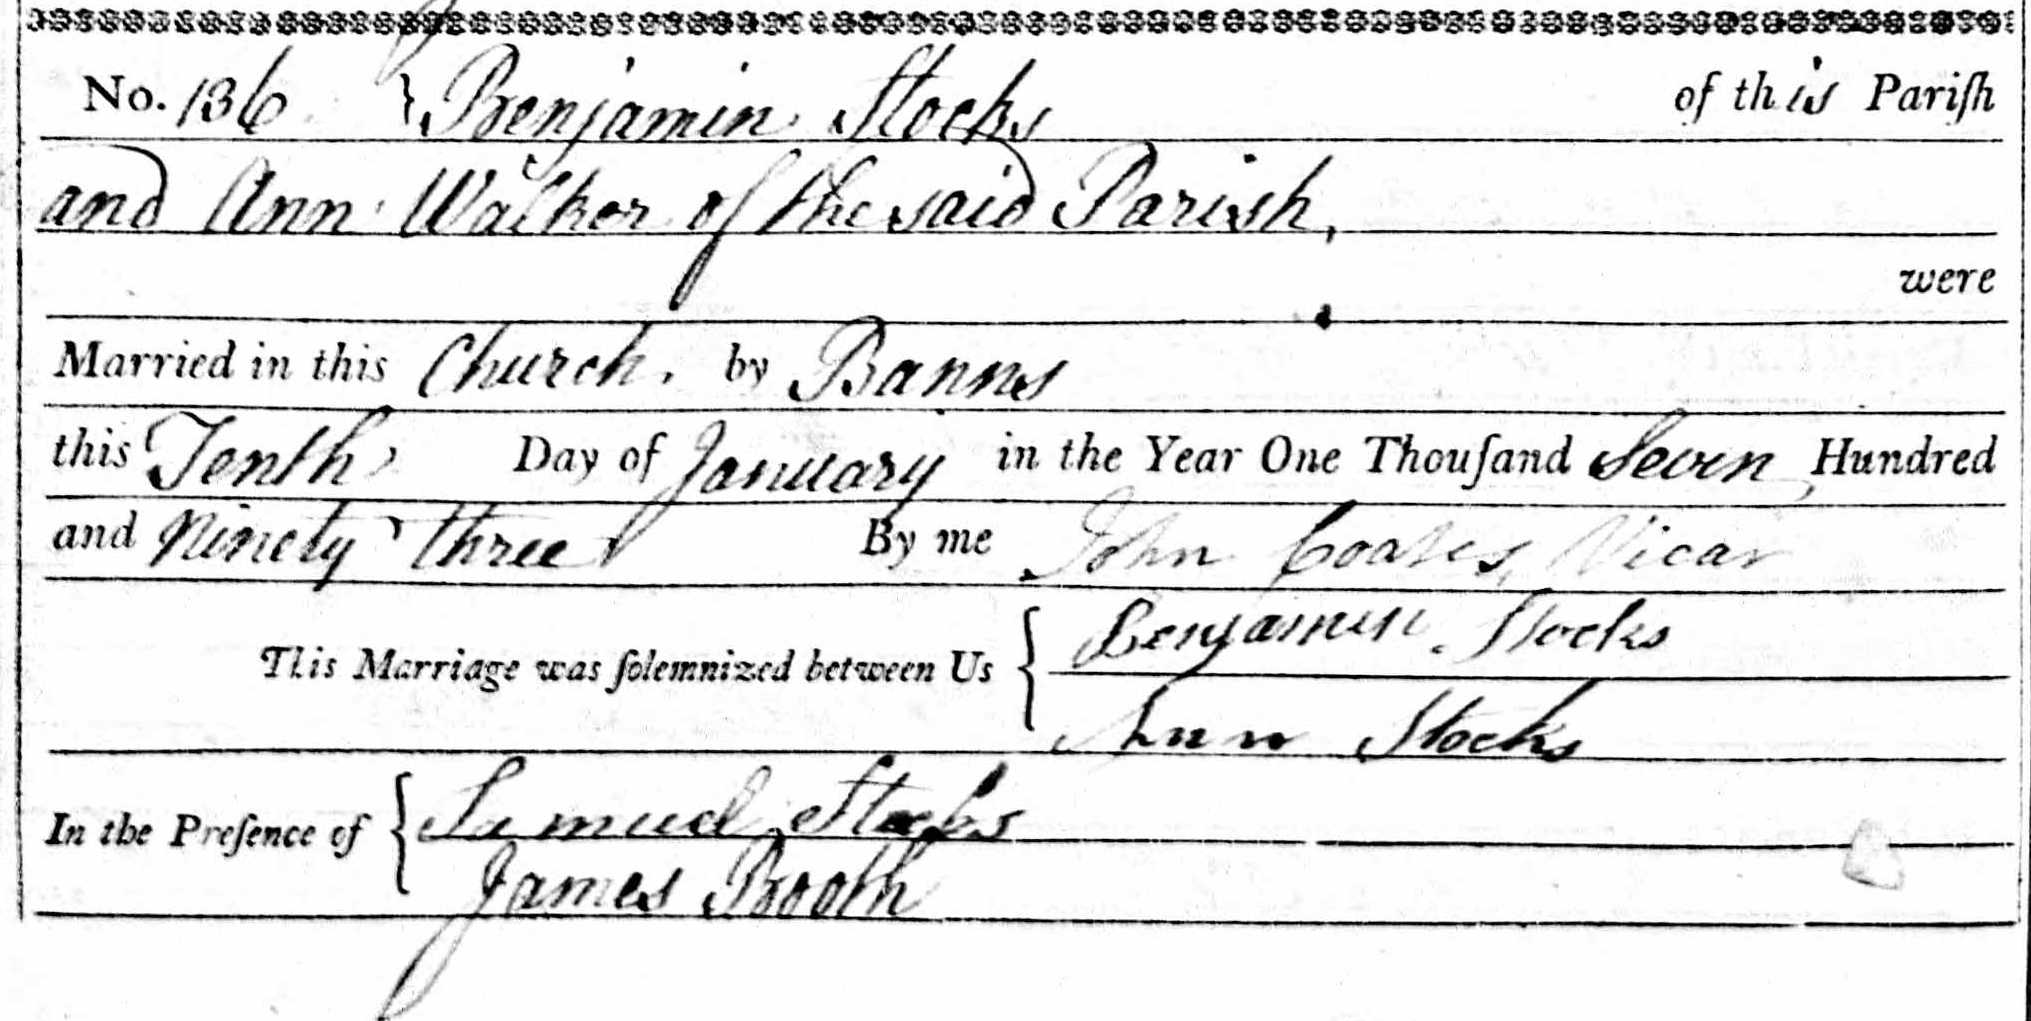 No. 136 } Benjamin Stocks of this Pariſh
and Ann Walker of the said Parish,
were
Married in this Church. by Banns
this Tenth Day of January in the Year One Thouſand Seven Hundred
and Ninety three By me John Coates, Vicar
This Marriage was ſolemnized between Us { Benjamin Stocks
Ann Stocks
In the Preſence of { Samuel Stocks
James Booth